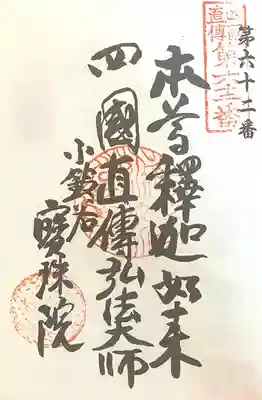 第六十二番
直傳第六十二番
本尊釋迦如来
四國直傳弘法大師
小鈴谷
寳珠院